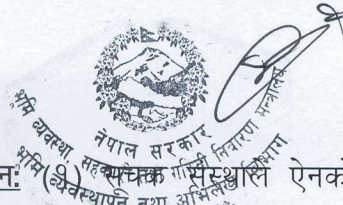 नेपाल सरकार
भूमि व्यवस्था, सहकारी तथा गरिबी निवारण मन्त्रालय
भूमि व्यवस्थापन तथा अभिलेख विभाग
न: (१) सूचक संस्थाले ऐनको